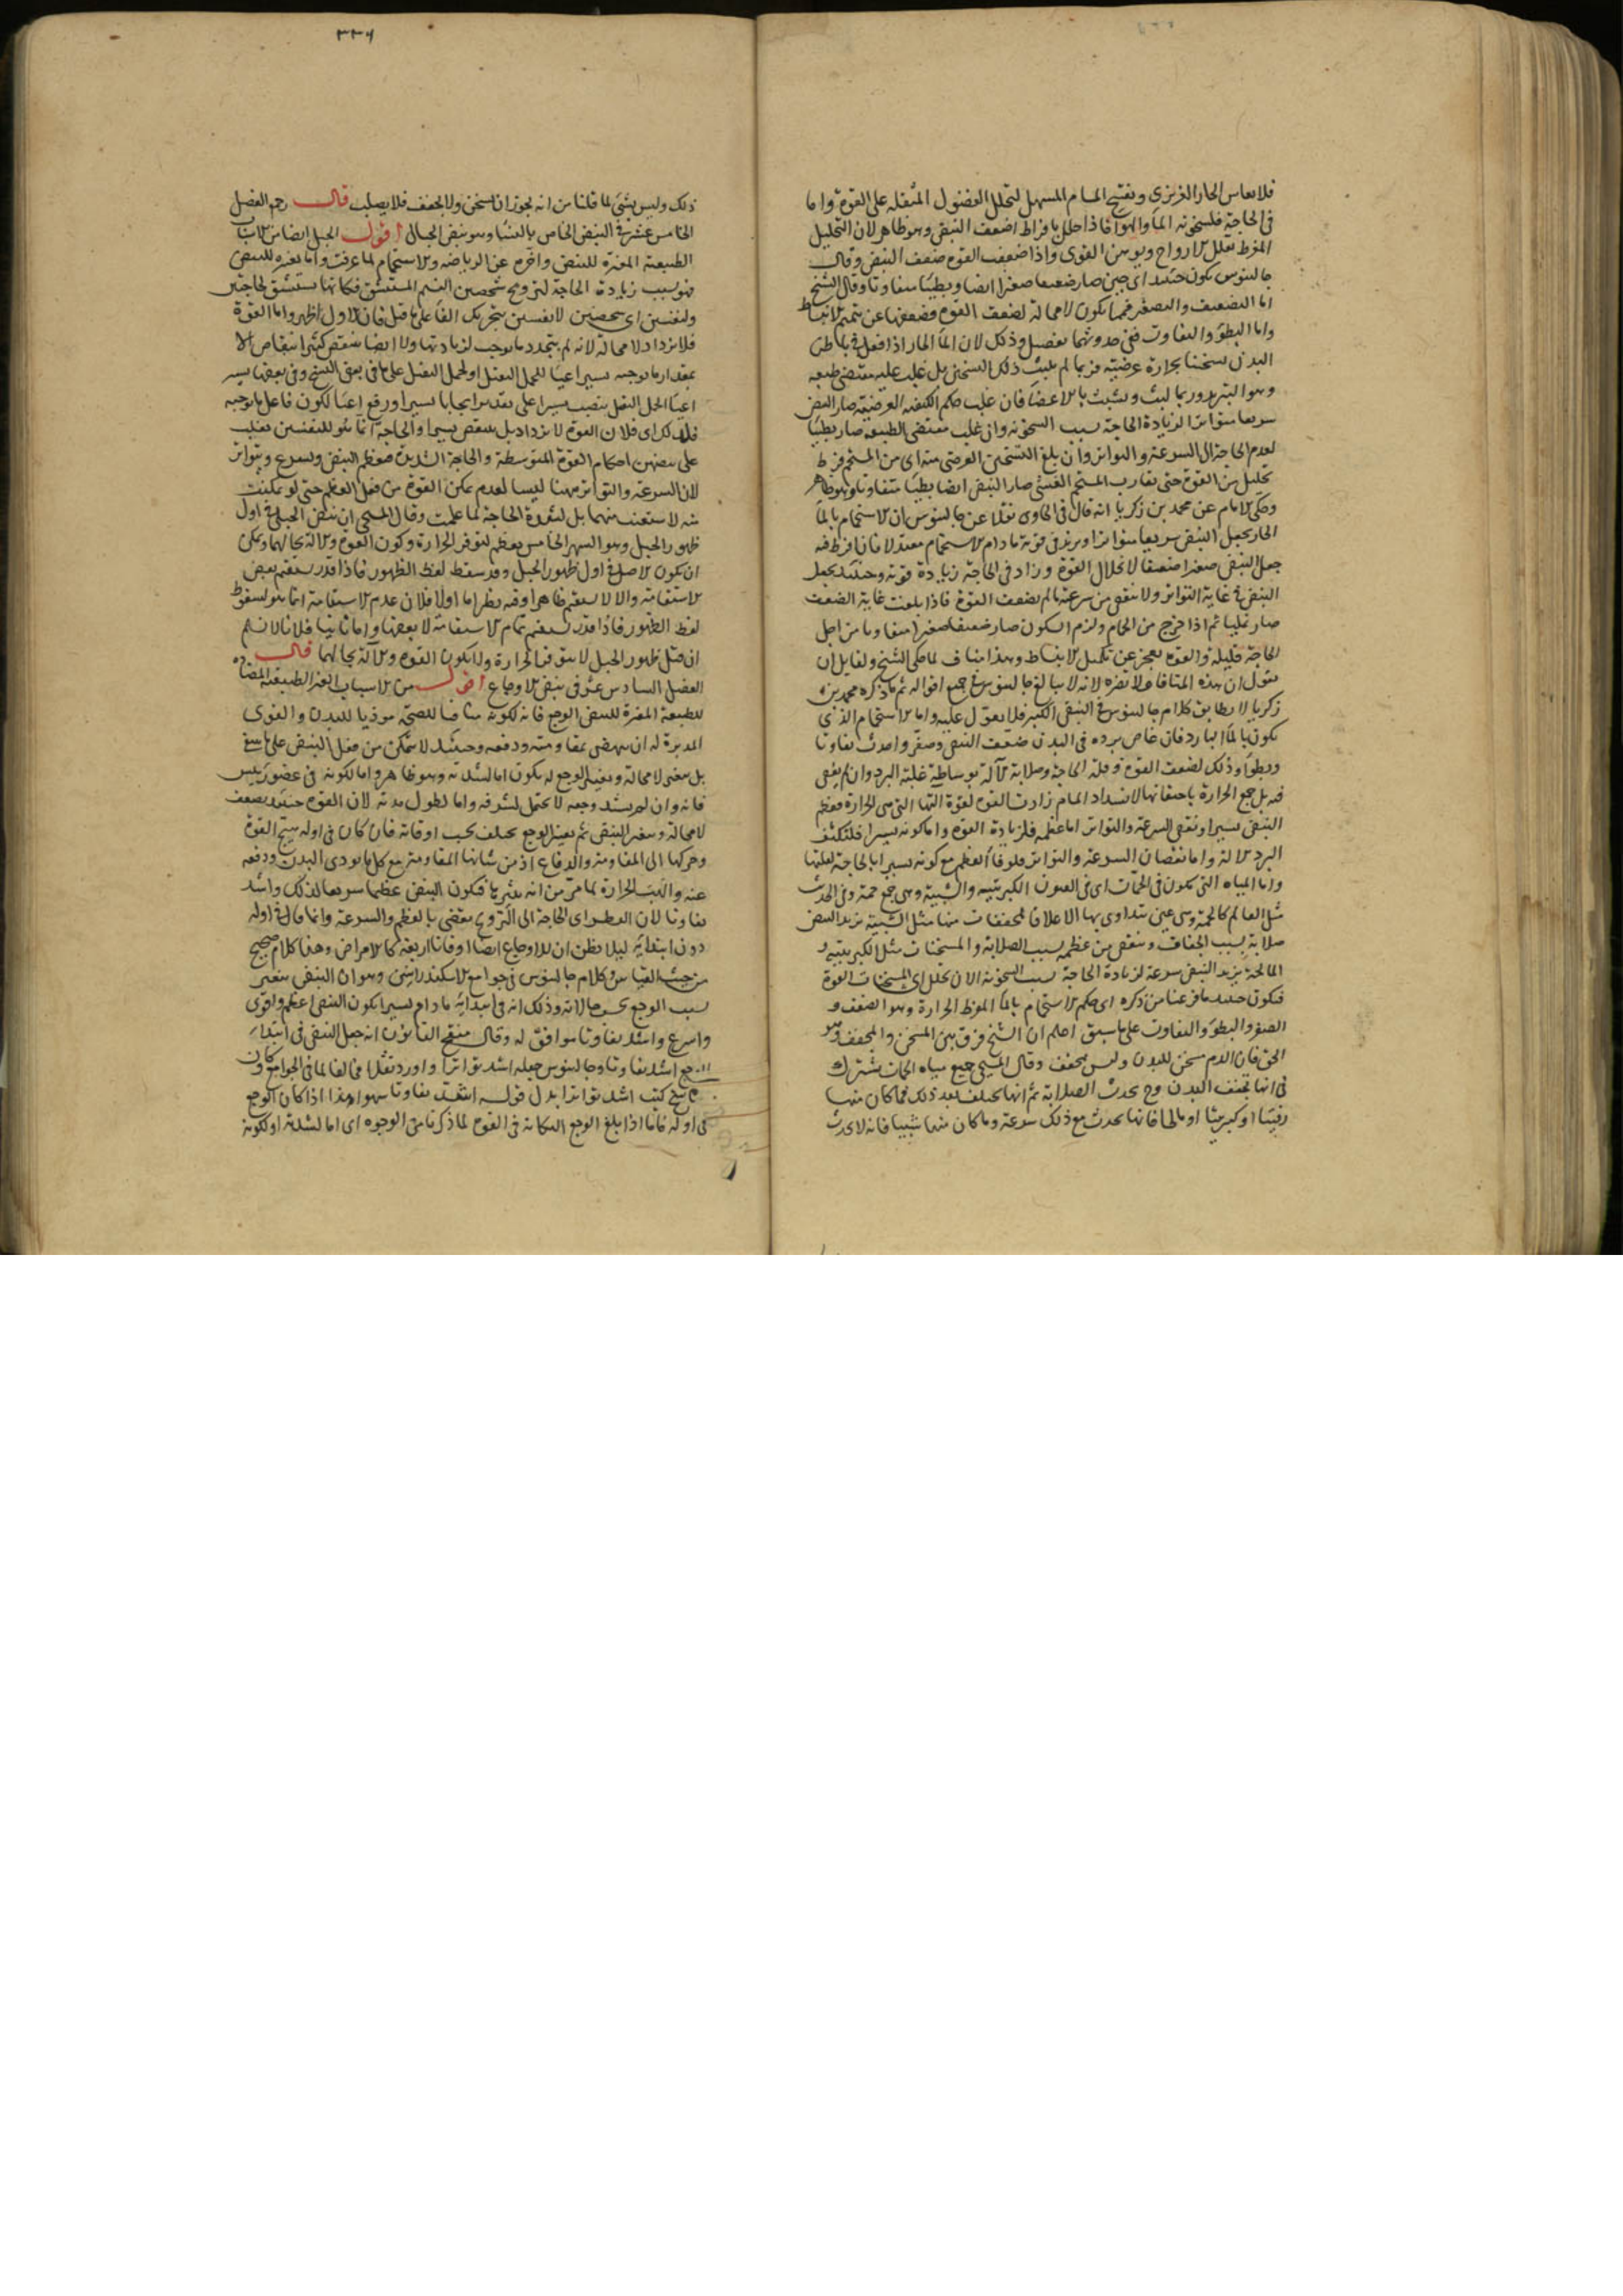 فلا يعاس الحار الغريزى وبفتح المسام المسهل لتحلل الفضول المثقلة على القوة واما
فى الحاجة فلسخونه الماء والهواء فاذا حلل بافراط اضعف النبض وهو ظاهر لان التحليل
المفرط يقلل الارواح ويوهن القوى واذا ضعفت القوة ضعف النبض وقال
جالينوس يكون حينئذ اى حين صار ضعيفا صغيرا ايضا وبطيئا متفاوتا وقال الشيخ
اما التضعيف والتصغير فمما يكون لا محالة لضعف القوة وضعفها عن تتميم الانبساط
واما البطؤ والتفاوت ففى حدوثهما تفصيل وذلك لان الماء الحار اذا فعل فى باطن
البدن تسخينا بحرارة عرضية فربما لم يلبث ذلك التسخين بل غلب عليه مقتضى طبعه
وهو التبريد وربما لبث وتشبث بالاعضاء فان غلب حكم الكيفيه العرضية صار النبض
سريعا متواترا لزيادة الحاجة بسبب السخونه وان غلب مقتضى الطبيعة صار بطيئا
لعدم الحاجة الى السرعة والتواتر وان بلغ التسخين العرضى منه اى من المستحم فرط
تحليل من القوة حتى تقارب المستحم الغشى صار النبض ايضا بطيئا متفاوتا وهو ظاهر
وحكى الامام عن محمد بن زكريا انه قال فى الحاوى نقلا عن جالينوس ان الاستحمام بالماء
الحار يجعل النبض سريعا متواترا ويزيد فى قوته ما دام الاستحمام معتدلا فان افرط فيه
جعل النبض صغيرا ضعيفا لانحلال القوة وزاد فى الحاجة زيادة قوته وحينئذ يجعل
النبض فى غاية التواتر ولا ينقص من سرعته ما لم تضعف القوة فاذا بلغت غاية الضعف
صار ثم اذا خرج من الحمام ولزم السكون صار ضعيفا صغيرا متفاوتا من اجل
الحاجة قليلة والقوة تعجز عن تكميل الانبساط وهذا مناف لما حكى الشيخ ولقايل ان
يقول ان هذه المنافاة لا تضره لانه لا يبالغ جالينوس فى جميع اقواله ثم ما ذكره محمد بن
زكريا لا يطابق كلام جالينوس فى النبض الكبير فلا يعول عليه واما الاستحمام الذى
يكون بالماء البارد فان غاص برده فى البدن ضعف النبض وصغر واحدث تفاوتا
وبطؤا وذلك لضعف القوة وقلة الحاجة وصلابة الآلة بوساطة غلبة البرد وان لم يغص
فيه بل جمع الحرارة باحتقانها لانسداد المسام زادت القوة لقوة آلتها التى هى الحرارة فعظم
النبض يسيرا ونقص السرعة والتواتر اما عظمه فلزيادة القوة واما كونه يسيرا فلتكثف
البرد الآلة واما نقصان السرعة والتواتر فلوفاء العظم مع كونه يسيرا بالحاجة لقلتها
واما المياه التى تكون فى الحمات اى فى العيون الكبريتية والشبية وهى جمع حمة وفى الحديث
مثل العالم كالحمة وهى عين يتداوى بها الاعلاء فالمجففات منها مثل الشبية تزيد النبض
صلابة بسبب الجفاف وينقص من عظمه بسبب الصلابة والمسخنات مثل الكبريتيه و
المالحة يزيد النبض سرعة لزيادة الحاجة بسبب السخونة الا ان تحلل اى المسخنات القوة
فيكون حينئذ ما فرغنا من ذكره اى حكم الاستحمام بالماء المفرط الحرارة وهو الضعف و
الصغر والبطؤ والتفاوت على ما سبق اعلم ان الشيخ فرق بين المسخن والمجفف وهو
الحق فان الدم مسخن للبدن وليس بمجفف وقال المسيحى جميع مياه الحمات يشترك
فى انها تجفف البدن وح يحدث الصلابة ثم انها تختلف بعد ذلك فما كان منها
زفتيا او كبريتيا او مالحا فانها يحدث مع ذلك سرعة وما كان منها شبيا فانه لا يحدث
٣٣٦
ذلك وليس بشئ لما قلنا من انه يجوز ان يسخن ولا يجفف فلا يصلب قال رحم الفصل
الخامس عشر فى النبض الخاص بالنساء وهو نبض الحبالى اقول الحبل ايضا من الاسباب
الطبيعية المغيرة للنبض واخره عن الرياضه والاستحمام لما عرفت واما تغييره للنبض
فهو بسبب زيادة الحاجة لترويح شخصين النسيم المستنشق فكانها تستنشق لحاجتين
ولنفسين اى شخصين لا نفسين بتحريك الفاء على ما قيل فان الاول اظهر واما القوة
فلا يزداد لا محالة لانه لم يتجدد ما يوجب لزيادتها ولا ايضا ينقص كثيرا انتقاص الا
بمقدار ما يوجبه يسير اعياء لحمل الثقل او لحمل الثقل على ما فى بعض النسخ وفى بعضها يسير
اعياء لحمل الثقل بنصب يسيرا على تقدير ايجابا يسيرا ورفع اعياء لكون فاعل ما يوجبه
فلذلك اى فلان القوة لا يزداد بل ينقص يسيرا والحاجة انما هو للنفسين تغلب
على نبضهن احكام القوة المتوسطة والحاجة الشديدة فيعظم النبض ويسرع ويتواتر
لان السرعة والتواتر ههنا ليسا لعدم تمكن القوة من فعل العظم حتى لو تمكنت
منه لاستغنت عنهما بل لشدة الحاجة لما علمت وقال المسيحى ان نبض الحبلى فى اول
ظهور الحبل وهو الشهر الخامس يعظم لتوفر الحرارة وكون القوة والآلة بحالهما ويمكن
ان يكون الاصل فى اول ظهور الحبل وقد سقط لفظ الظهور فاذا قدر يستقيم بعض
الاستقامة والا لا يستقيم ظاهرا وفيه نظر اما اولا فلان عدم الاستقامة انما هو لسقوط
لفظ الظهور فاذا قدر يستقيم تمام الاستقامة لا بعضها واما ثانيا فلانا لا نسلم
ان قبل ظهور الحبل لا يتوفر الحرارة ولا يكون القوة والآلة بحالهما قال
الفصل السادس عشر فى نبض الاوجاع اقول من الاسباب الغير الطبيعية المضادة
للطبيعة المغيرة للنبض الوجع فانه لكونه منافيا للصحة موذيا للبدن والقوى
المدبرة له ان ينهض بمقاومته ودفعه وحينئذ لا تتمكن من فعل النبض على ما ينبغى
بل يتغير لا محالة وتغيير الوجع له يكون اما لشدته وهو ظاهر واما لكونه فى عضو رئيس
فانه وان لم يشتد وجعه لا يحتمل لشرفه واما لطول مدته لان القوة حينئذ يضعف
لا محالة ويتغير النبض ثم تغيير الوجع يختلف بحسب اوقاته فان كان فى اوله هيج القوة
وحركها الى المقاومة والدفاع اذ من شانها المقاومة مع كل ما يوذى البدن ودفعه
عنه والهب الحرارة لما مر من انه يثيرها فيكون النبض عظيما سريعا لذلك واشد
تفاوتا لان الوطر اى الحاجة الى الترويح يقضى بالعظم والسرعة وانما قال فى اوله
دون ابتدايه ليلا يظن ان للاوجاع ايضا اوقاتا اربعة كالامراض وهذا كلام صحيح
من حيث القياس وكلام جالينوس فى جوامع الاسكندرانيين وهو ان النبض يتغير
بسبب الوجع حالاته وذلك انه فى ابتدايه ما دام يسيرا يكون النبض اعظم واقوى
واسرع واشد تفاوتا موافق له وقال منقح القانون انه جعل النبض فى ابتداء
الوجع اشد تفاوتا وجالينوس جعله اشد تواترا واورد نقلا مخالفا لما فى الجوامع وكان
الناسخ كتب اشد تواترا بدل قوله اشد تفاوتا سهوا هذا اذا كان الوجع
فى اوله فاما اذا بلغ الوجع النكاية فى القوة لما ذكرنا من الوجوه اى اما لشدته او لكونه